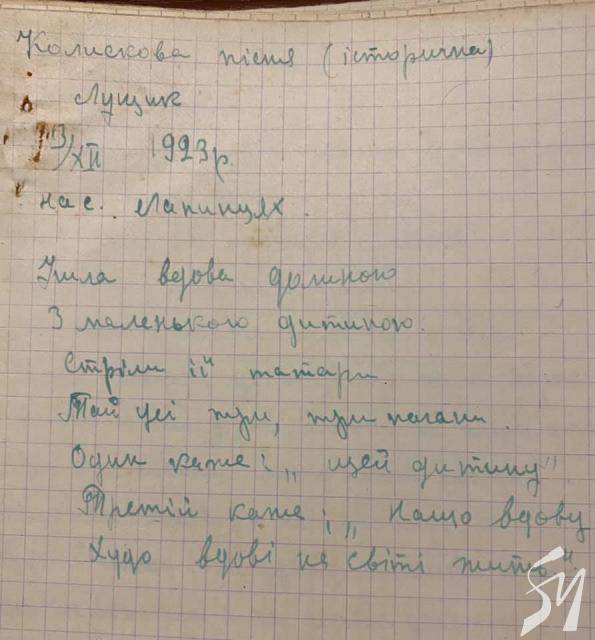 Колискова пісня (історична)
Лущик
13/XII 1923 р.
на с. Лапинцях.
Ішла вдова долиною
З маленькою дитиною.
Стріли її татари
Тай усі три, три погани.
Один каже: „ цей дитину"
Третій каже: „ нащо вдову
Худо вдові на світі жити."
SM